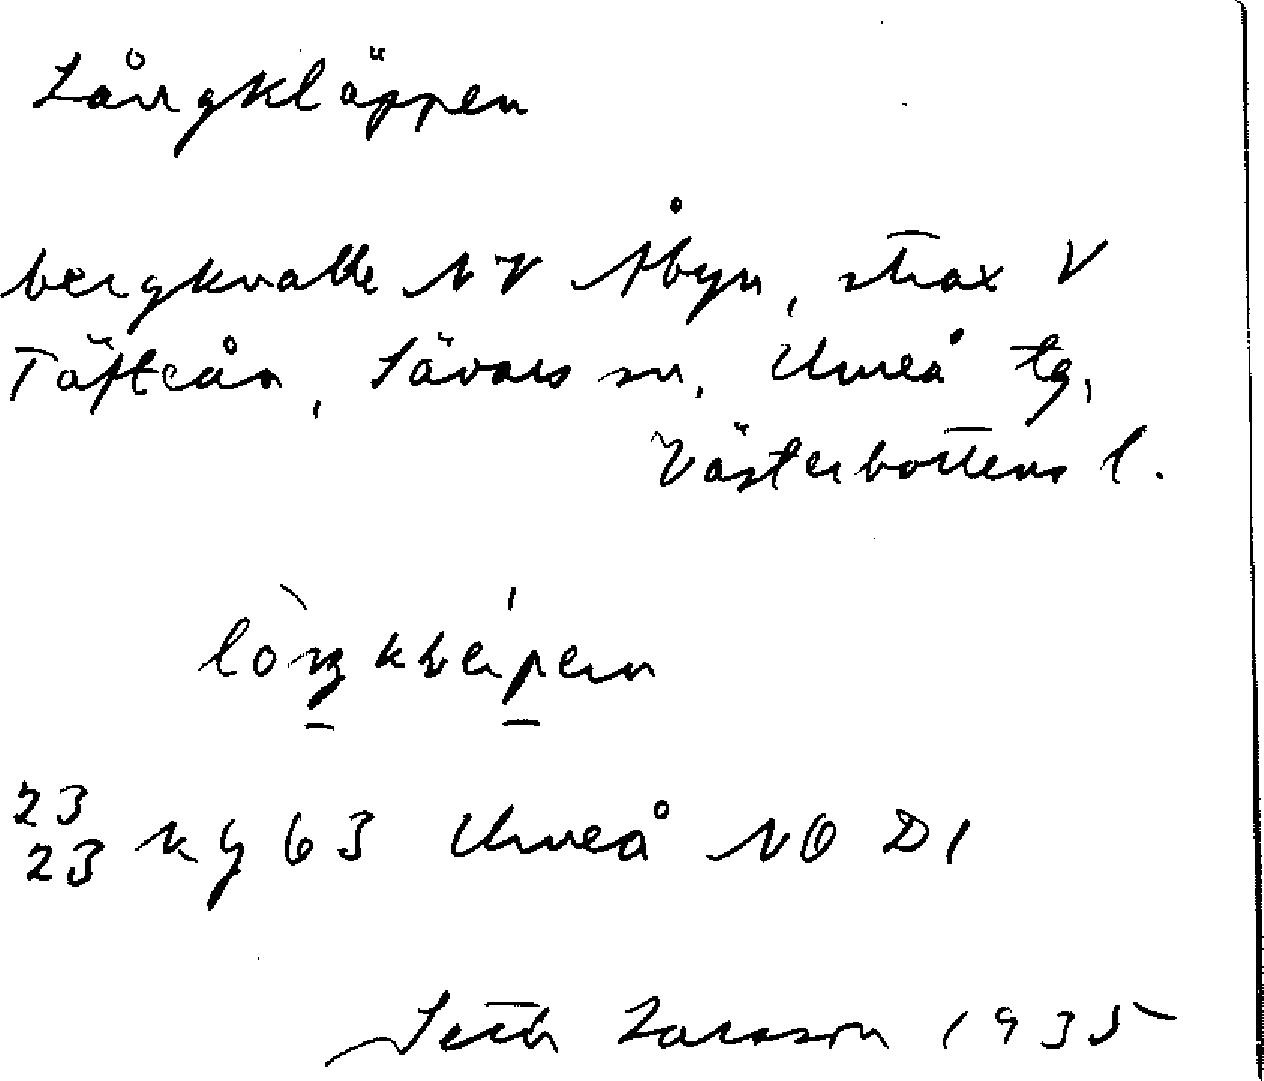 Långkläppen
bergknalle NV Åbyn, strax V
Täfteån, Sävars sn, Umeå tg,
Västerbottens l.
23
23 63 Umeå NO D1
Seth Larsson 1935